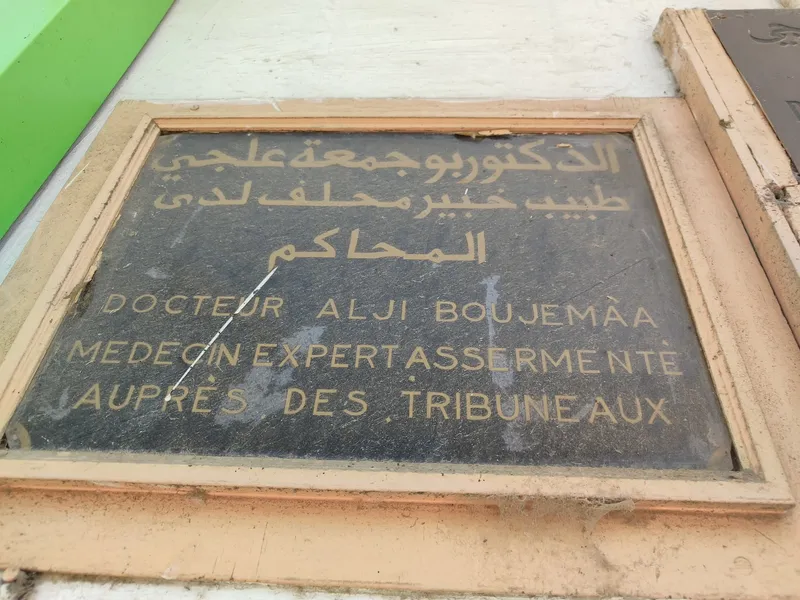 الدكتور بوجمعة علجي
طبيب خبير محلف لدى
المحاكم
DOCTEUR ALJI BOUJEMÂA
MEDECIN EXPERT ASSERMENTÉ
AUPRÈS DES TRIBUNEAUX